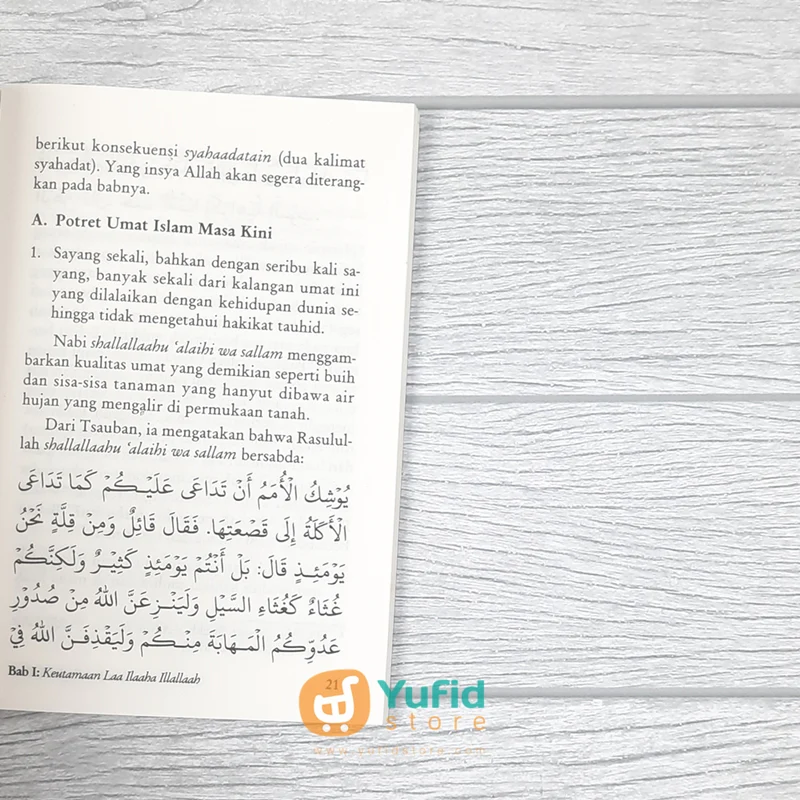 berikut konsekuensi syahaadatain (dua kalimat
syahadat). Yang insya Allah akan segera diterang-
kan pada babnya.
A. Potret Umat Islam Masa Kini
1. Sayang sekali, bahkan dengan seribu kali sa-
yang, banyak sekali dari kalangan umat ini
yang dilalaikan dengan kehidupan dunia se-
hingga tidak mengetahui hakikat tauhid.
Nabi shallallaahu ‘alaihi wa sallam menggam-
barkan kualitas umat yang demikian seperti buih
dan sisa-sisa tanaman yang hanyut dibawa air
hujan yang mengalir di permukaan tanah.
Dari Tsauban, ia mengatakan bahwa Rasulul-
lah shallallaahu ‘alaihi wa sallam bersabda:
يُوْشِكُ الْأُمَمُ أَنْ تَدَاعَى عَلَيْكُمْ كَمَا تَدَاعَى
الْأَكَلَةُ إِلَى قَصْعَتِهَا. فَقَالَ قَائِلٌ وَمِنْ قِلَّةٍ نَحْنُ
يَوْمَئِذٍ قَالَ: بَلْ أَنْتُمْ يَوْمَئِذٍ كَثِيْرٌ وَلَكِنَّكُمْ
غُثَاءٌ كَغُثَاءِ السَّيْلِ وَلَيَنْزِعَنَّ اللهُ مِنْ صُدُوْرِ
عَدُوِّكُمُ الْمَهَابَةَ مِنْكُمْ وَلَيَقْذِفَنَّ اللهُ فِيْ
Bab I: Keutamaan Laa Ilaaha Illallaah 21
Yufid
store
www.yufidstore.com